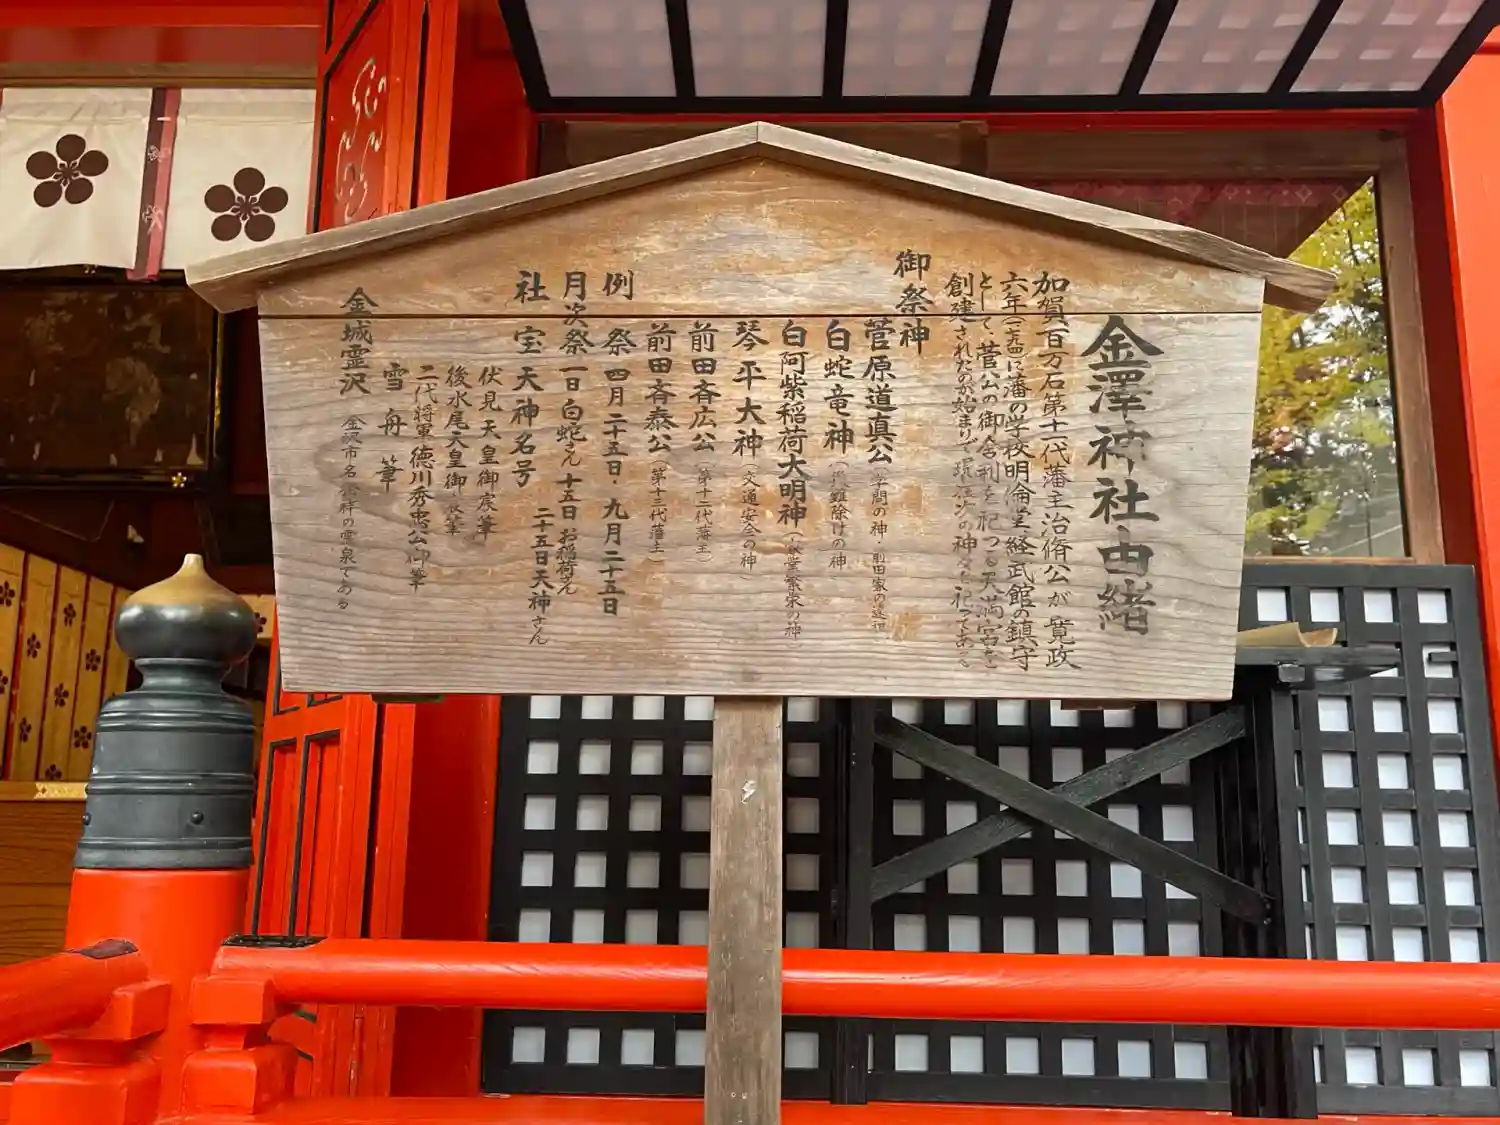 金澤神社由緒
加賀百万石第十一代藩主治脩公が寛政
六年(一七九四)に藩の学校明倫堂経武館の鎮守
として菅公の御舎利を祀つる天満宮を
創建されたのが始まりで現在次の神々を祀つてある
御祭神
菅原道真公(学問の神・前田家の遠祖
白蛇竜神(災難除けの神)
白阿紫稲荷大明神(商業繁栄の神)
琴平大神(交通安全の神)
前田斉広公(第十二代藩主)
前田斉泰公(第十三代藩主)
例祭 四月二十五日・九月二十五日
月次祭 一日白蛇さん 十五日お稲荷さん
二十五日天神さん
社宝 天神名号
伏見天皇御宸筆
後水尾天皇御宸筆
二代将軍徳川秀忠公御筆
雪舟筆
金城霊沢 金沢市名発祥の霊泉である